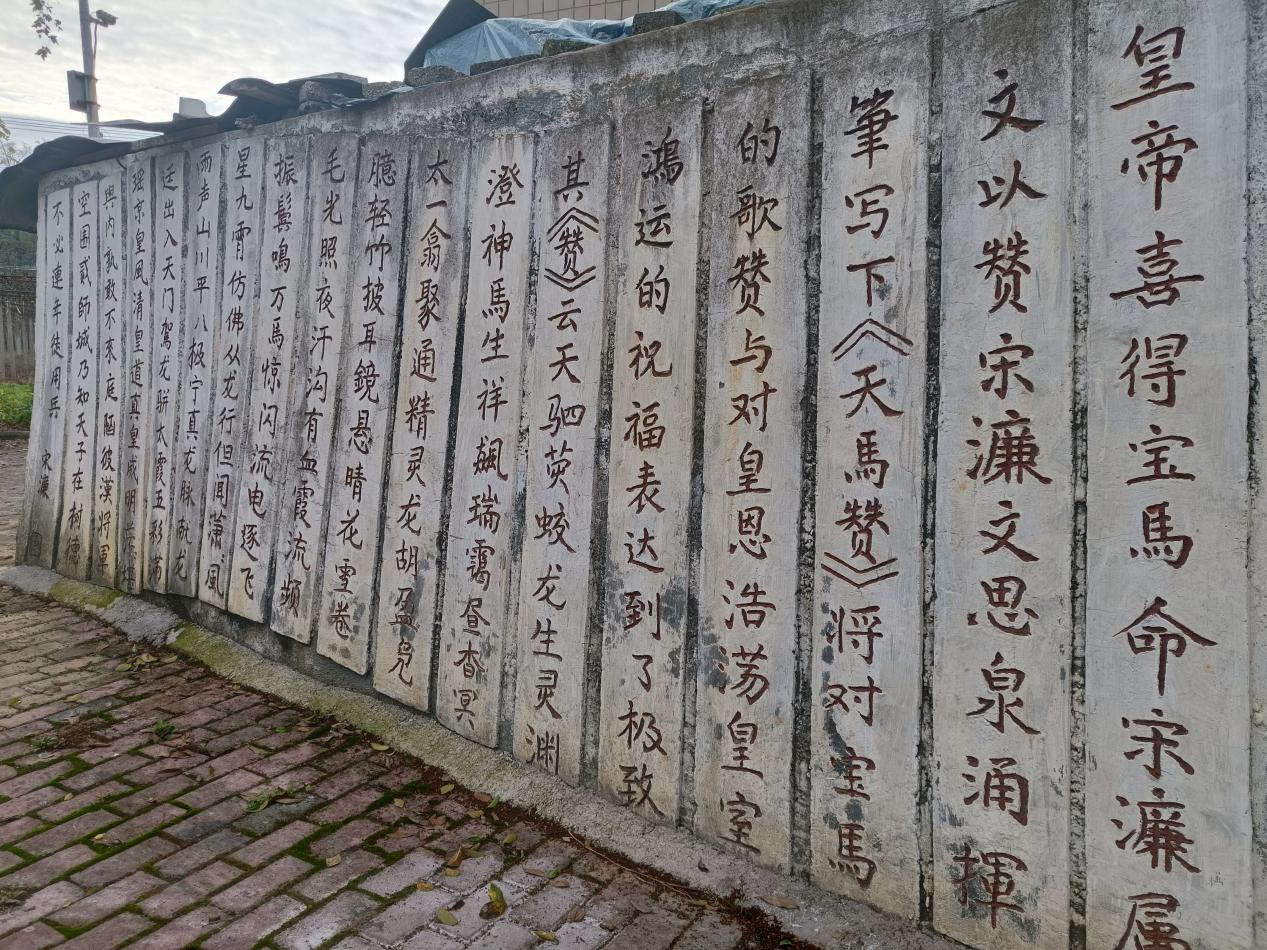 皇帝喜得宝馬命宋濂属
文以赞宋濂文思泉涌揮
筆写下《天馬赞》将对宝馬
的歌赞与对皇恩浩荡皇室
鸿运的祝福表达到了极致
其《赞》云天驷荧蛟龙生灵渊
澄神馬生祥飙瑞霭昼杳冥
太一翕聚通精灵龙胡盈凫
臆轻竹披耳鏡悬晴花雪卷
毛光照夜汗沟有血霞流频
振鬓鳴万馬惊闪流电逐飞
星九霄仿佛从龙行但闻萧風
雨声山川平八极宁真龙脉献龙
廷出入天门驾龙骈太霞五彩
瑶京皇風清皇道真皇城明
舆内孰敢不来庭陋彼漢将軍
空围贰師城乃知天子在树德
不必連年徒用兵 宋濂